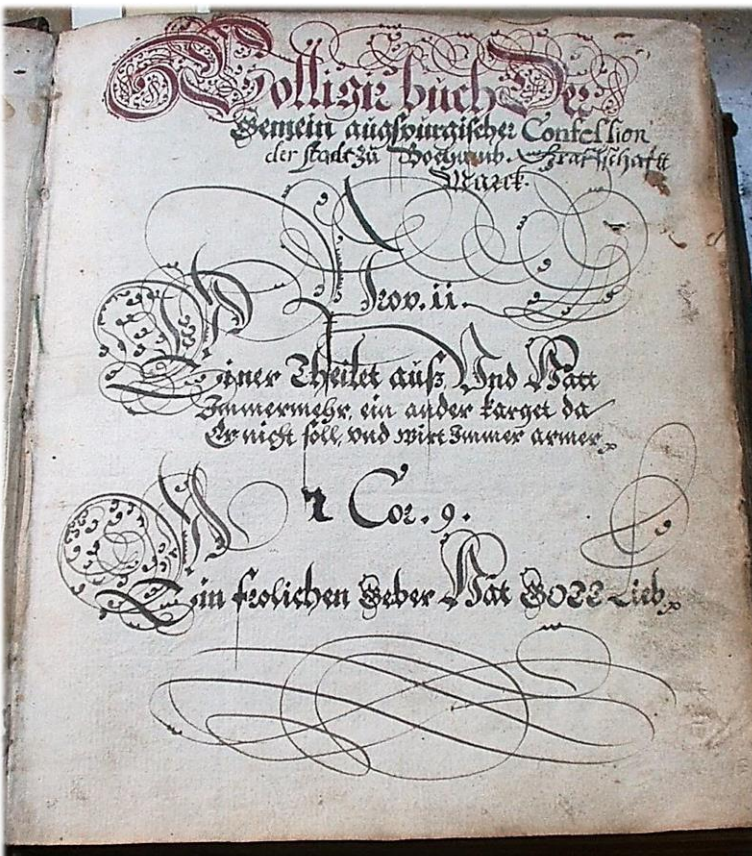 Collignir buch Der
Gemein augspurgischer Confession
der stadt zu Bochumb. Graffschafft
Marck.
Prov. 11.
Einer Theilet auß Und Hatt
Immermehr, ein ander karget da
Er nicht soll, vnd wirt Immer armer
2 Cor. 9.
Ein frolichen Geber Hat GOTT Lieb